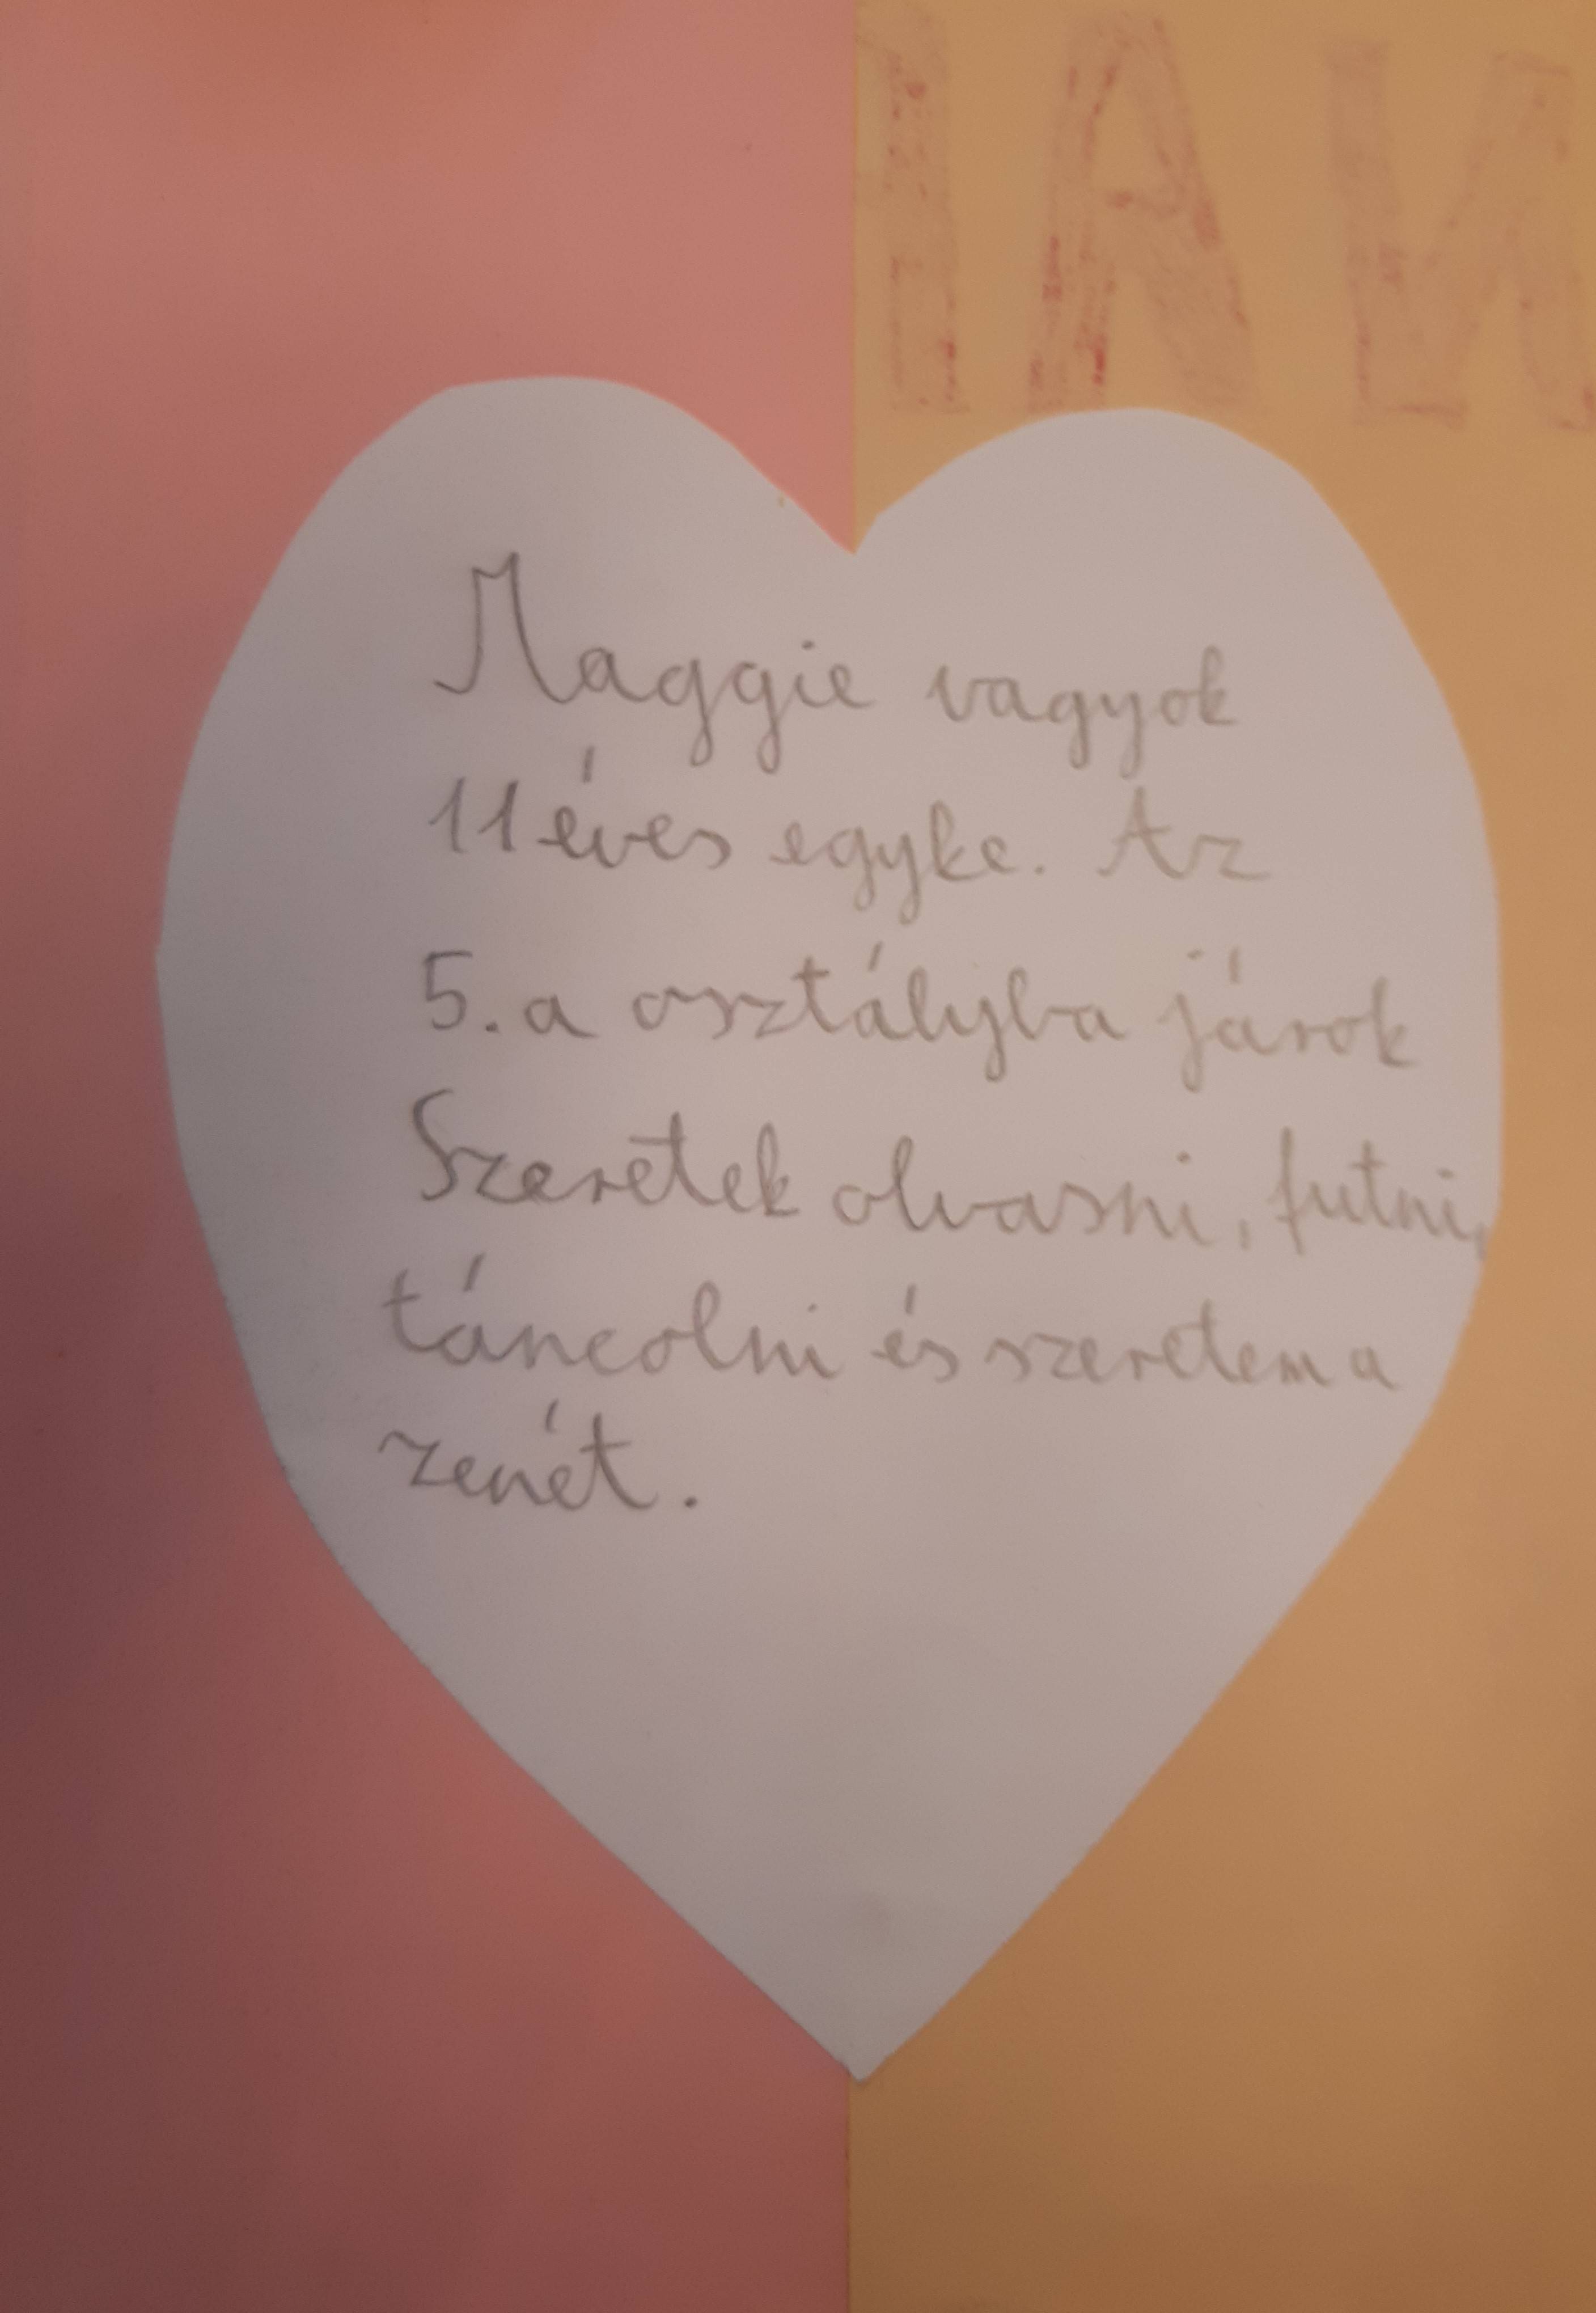 Maggie vagyok
11 éves egyke. Az
5. a osztályba járok
Szeretek olvasni, futni,
táncolni és szeretem a
zenét.